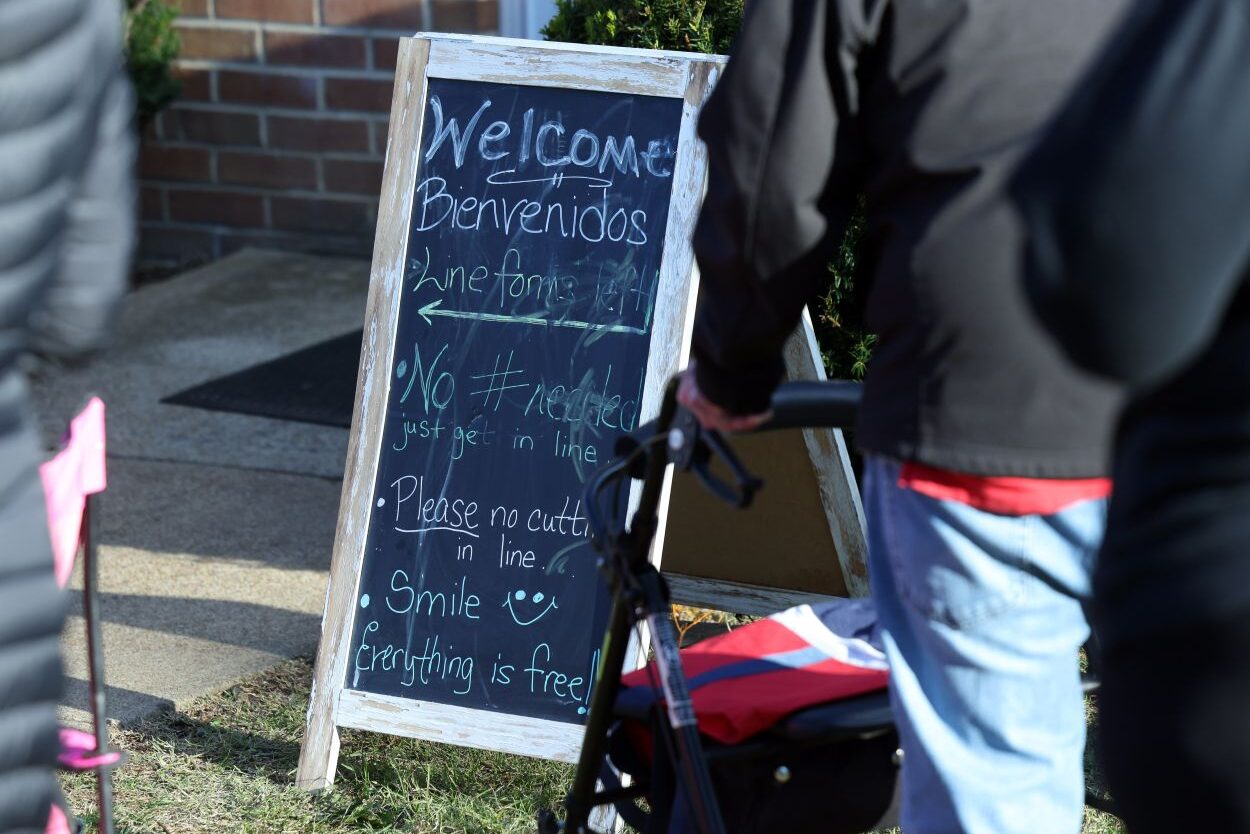 Welcome
Bienvenidos
Line forms left
• No # needed
just get in line.
• Please no cutti
in line.
• Smile
Everything is free!